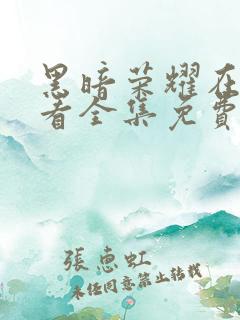 黑暗荣耀在
看全集免費
張惠虹
未经同意禁止转载